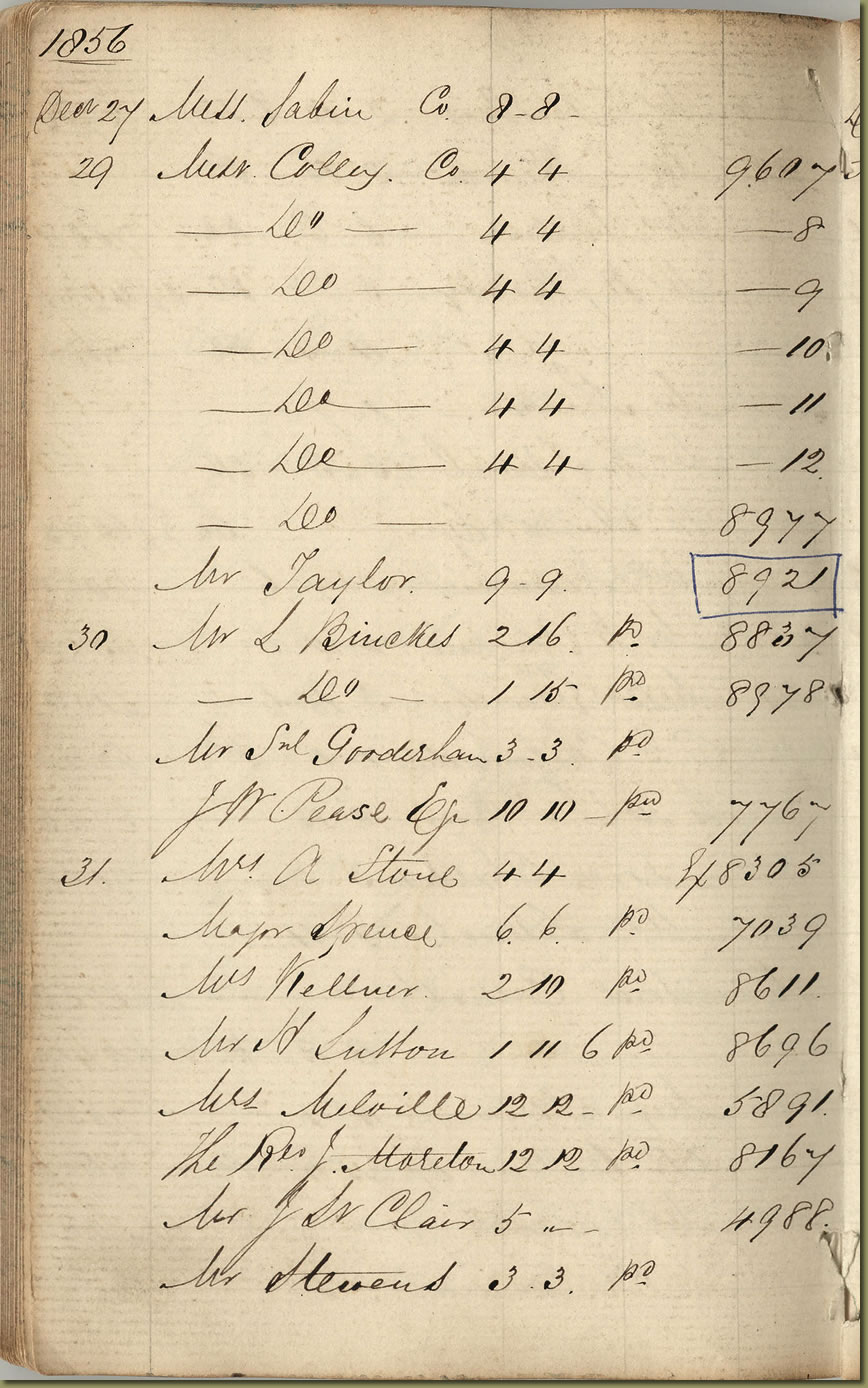 1856
Decr 27 Mess. Sabin Co. 8-8-
29 Messr. Colley. Co. 4 4 9607
— Do — 4 4 — 8
— Do — 4 4 — 9
— Do — 4 4 — 10
— Do — 4 4 — 11
— Do — 4 4 — 12.
— Do — 8977
Mr Taylor. 9-9. 8921
30 Mr L Binckes 2 16. pd 8837
— Do — 1 15 pd 8978
Mr Sml Gooderham 3-3. pd
J W Pease Eq 10 10 - pd 7767
31. Mrs. A Stone 4 4 8305
Major Spence 6. 6. pd 7039
Mrs Kellner. 2 10 pd 8611.
Mr H Sutton 1 11 6 pd 8696
Mrs Melville 12 12 - pd 5891.
The Rev. J. Moreton 12 12 pd 8167
Mr. J St Clair 5 „ - 4988.
Mr Stevens 3. 3. pd